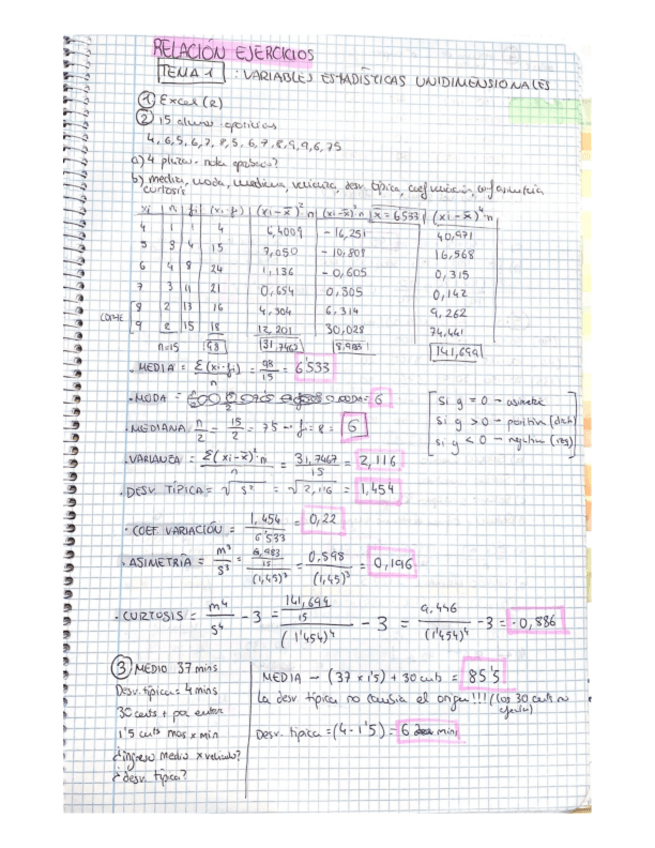 RELACIÓN EJERCICIOS
TEMA 1 : VARIABLES ESTADÍSTICAS UNIDIMENSIONALES
① Excel (R)
② 15 alumn opositrias
4, 6, 5, 6, 7, 8, 5, 6, 7, 8, 9, 9, 6, 7 5
a) 4 plazas - nota aprobar?
b) media, moda, mediana, varianza, desv. típica, coef variación, coef asimetría
curtosis
xi | n | fi | (xi·fi) | (xi-x̄)² n | (xi-x̄)³ n | x̄ = 6'533 | (xi-x̄)⁴ n
4 1 1 4 6,4009 -16,251 40,971
5 3 4 15 7,050 -10,809 16,568
6 4 8 24 1,136 -0,605 0,315
7 3 11 21 0,654 0,305 0,142
CORTE 8 2 13 16 4,304 6,314 9,262
9 2 15 18 12,201 30,028 74,441
n=15 98 31,7467 8,9831 141,694
· MEDIA = Σ(xi·fi)/n = 98/15 = 6'533
· MODA = MODA = 6
· MEDIANA n/2 = 15/2 = 7 5 → fi = 8 = 6
Si g = 0 - asimetric
Si g > 0 - positiva (dcha)
Si g < 0 - negativa (izq)
· VARIANZA = Σ(xi-x̄)² ni/n = 31,7467/15 = 2,116
· DESV. TÍPICA = √s² = √2,116 = 1,454
· COEF. VARIACIÓN = 1,454/6'533 = 0,22
· ASIMETRÍA = m³/s³ = 8,983/15/(1,45)³ = 0,598/(1,45)³ = 0,196
· CURTOSIS = m⁴/s⁴ - 3 = 141,694/15/(1'454)⁴ - 3 = 9,446/(1'454)⁴ - 3 = -0,886
③ MEDIO 37 mins
Desv. típica = 4 mins
30 cents + por entrar
1'5 cents mas x min
¿ingreso medio x vehiculo?
¿desv. típica?
MEDIA - (37 x 1'5) + 30 cent = 85'5
La desv típica no cambia el origen!!! (los 30 cents no
Desv. típica = (4 · 1'5) = 6 mins